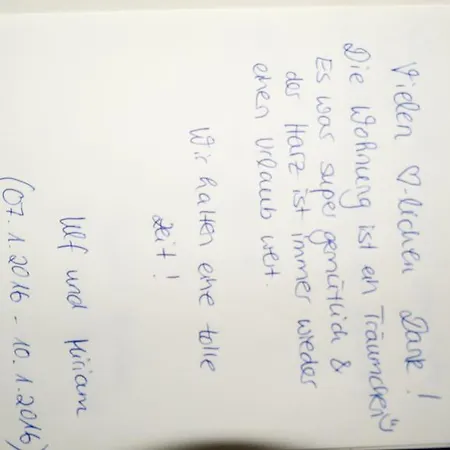 Vielen ♡-lichen Dank!
Die Wohnung ist ein Träumchen
Es war super gemütlich &
der Harz ist immer wieder
einen Urlaub wert.
Wir hatten eine tolle
Zeit!
Ulf und Miriam
(07.1.2016 - 10.1.2016)